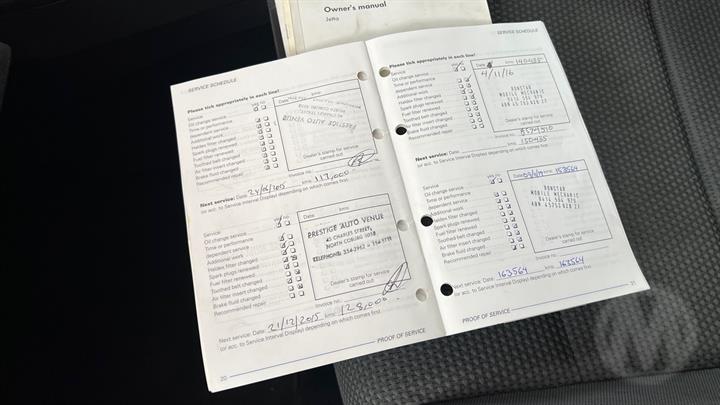 Owner's manual
Jetta
SERVICE SCHEDULE
Please tick appropriately in each line!
yes no
Service
Oil change service
Time or performance
dependent service
Additional work
Haldex filter changed
Spark plugs renewed
Fuel filter renewed
Toothed belt changed
Air filter insert changed
Brake fluid changed
Recommended repair
Date kms:
PRESTIGE AUTO VENUE
Dealer's stamp for service
carried out
Invoice no.
Next service: Date: kms: 117,000
(or acc. to Service Interval Display) depending on which comes first
yes no
Service
Oil change service
Time or performance
dependent service
Additional work
Haldex filter changed
Spark plugs renewed
Fuel filter renewed
Toothed belt changed
Air filter insert changed
Brake fluid changed
Recommended repair
Date kms:
PRESTIGE AUTO VENUE
45 CHARLES STREET,
NORTH COBURG 3058
TELEPHONE:
Dealer's stamp for service
carried out
Invoice no.
Next service: Date: 21/12/2015 kms: 128,000
(or acc. to Service Interval Display) depending on which comes first
20
PROOF OF SERVICE
SERVICE SCHEDULE
Please tick appropriately in each line!
yes no
Service
Oil change service
Time or performance
dependent service
Additional work
Haldex filter changed
Spark plugs renewed
Fuel filter renewed
Toothed belt changed
Air filter insert changed
Brake fluid changed
Recommended repair
Date kms: 140485
4/11/16
DONSTAR
MOBILE MECHANIC
Dealer's stamp for service
carried out
Invoice no.
Next service: Date: kms: 150485
(or acc. to Service Interval Display) depending on which comes first
yes no
Service
Oil change service
Time or performance
dependent service
Additional work
Haldex filter changed
Spark plugs renewed
Fuel filter renewed
Toothed belt changed
Air filter insert changed
Brake fluid changed
Recommended repair
Date kms: 153564
DONSTAR
MOBILE MECHANIC
Dealer's stamp for service
carried out
Invoice no.
Next service: Date: 163564 kms: 163564
(or acc. to Service Interval Display) depending on which comes first
PROOF OF SERVICE
21